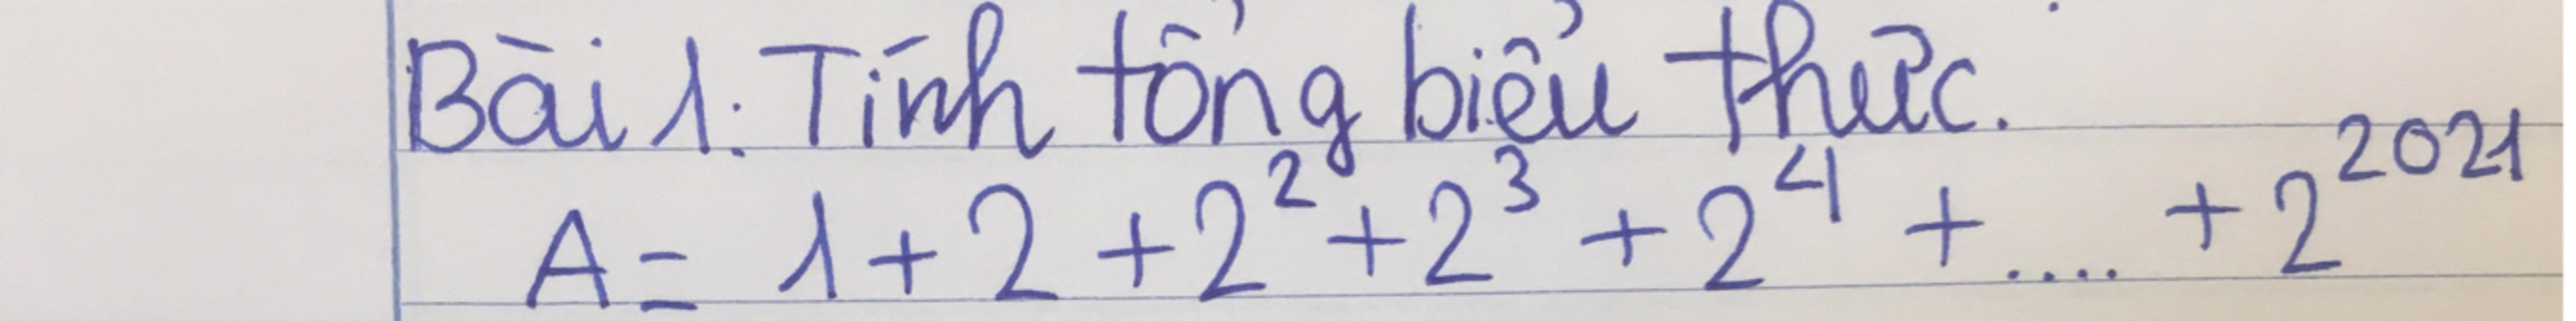 Bài 1: Tính tổng biểu thức.
A = 1 + 2 + 2² + 2³ + 2⁴ + .... + 2²⁰²¹